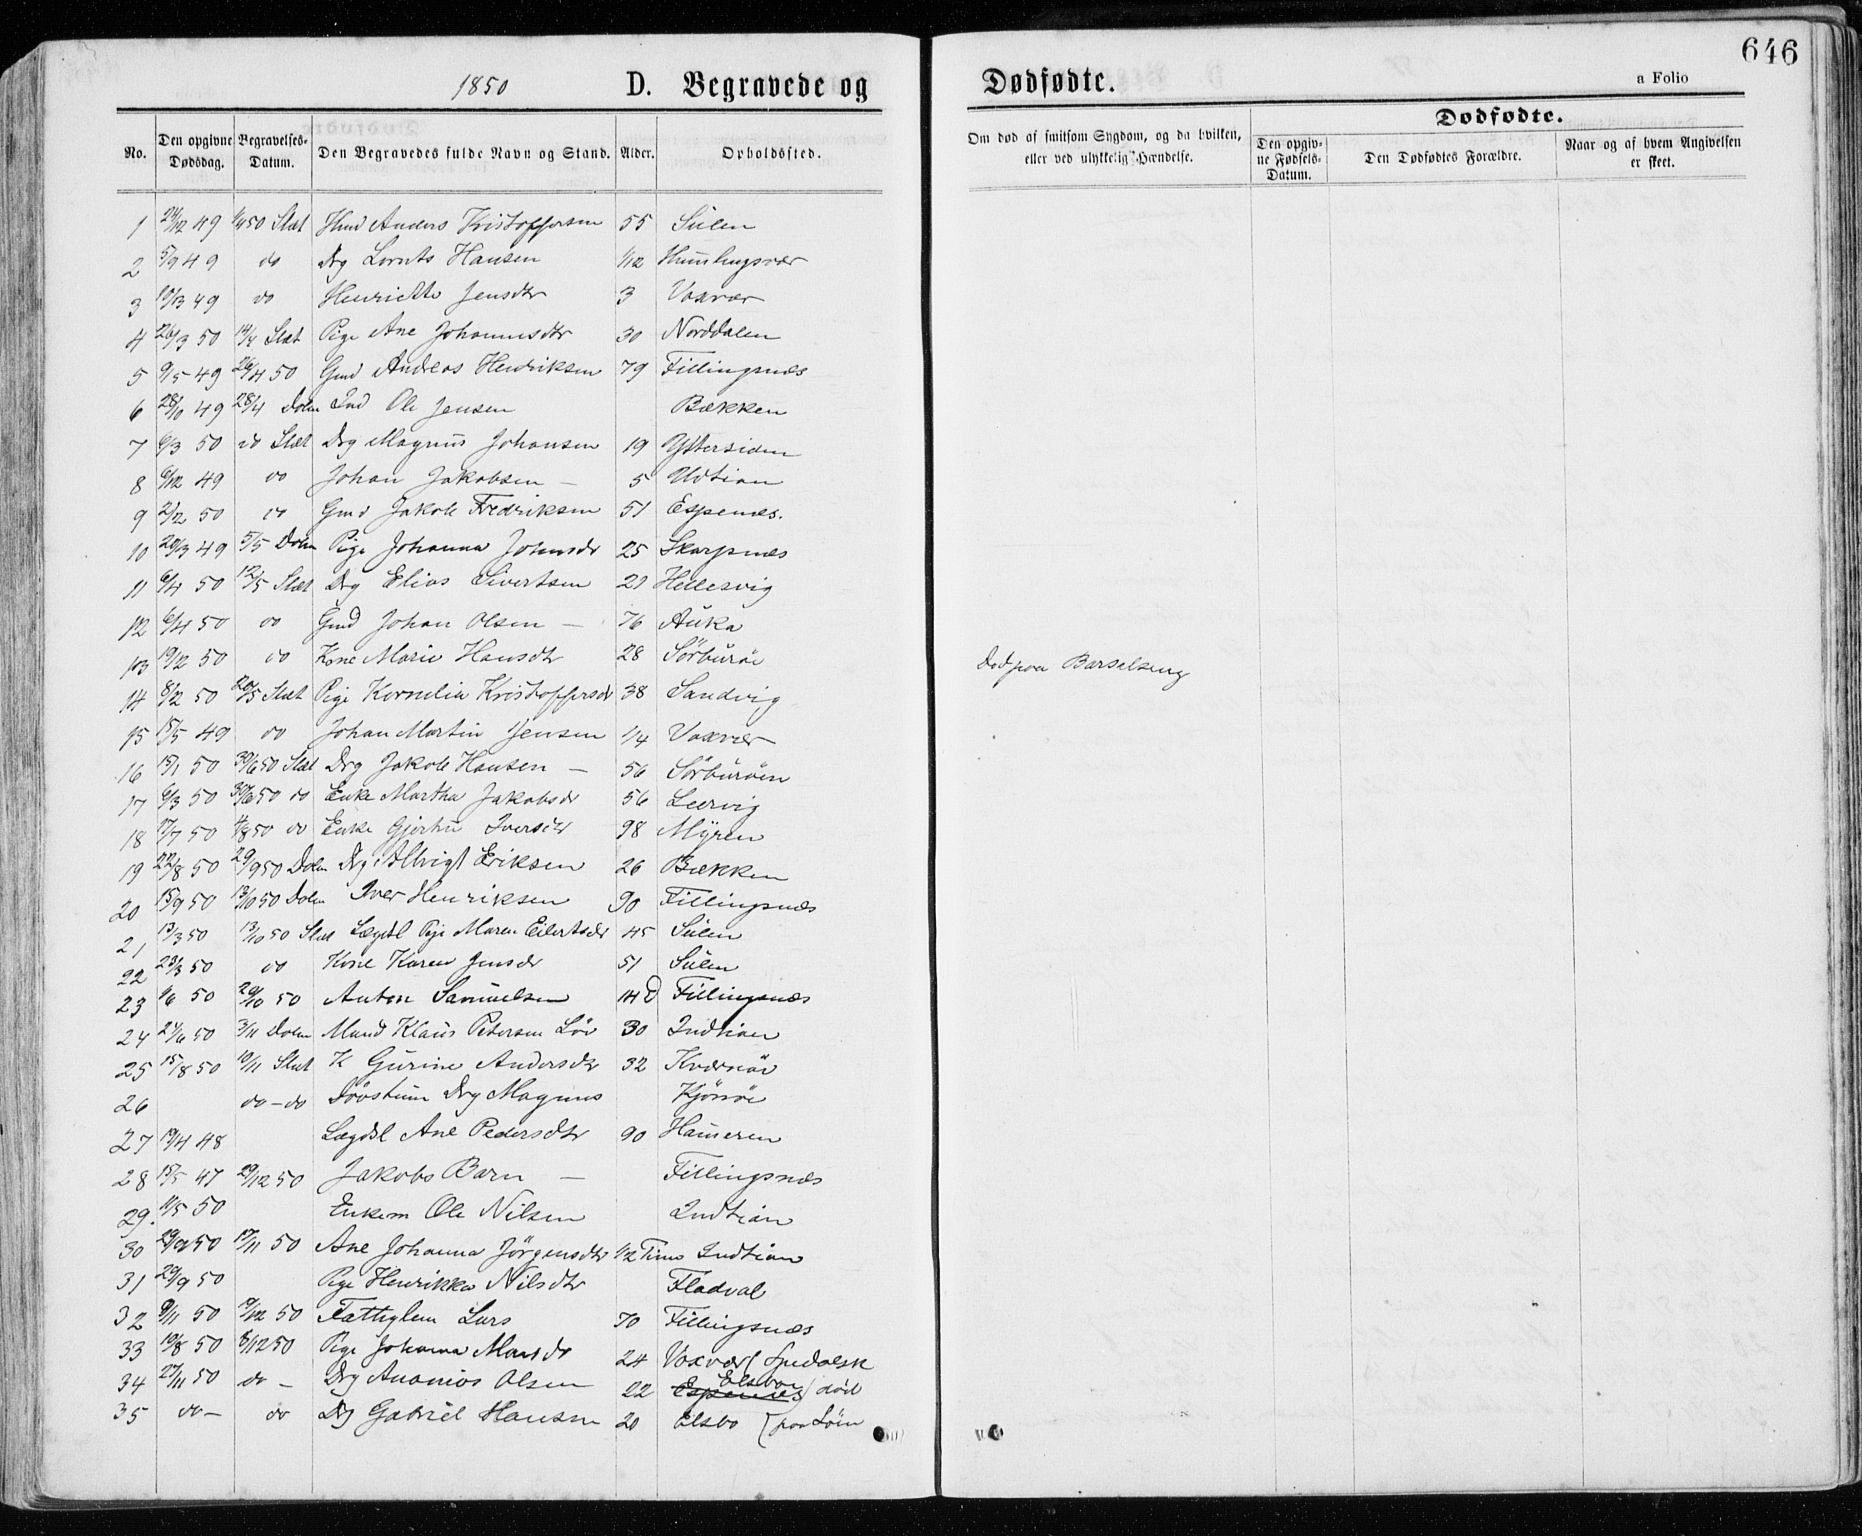 646
1850 D. Begravede og Dødfødte. a Folio
Dødfødte.
No. Den opgivne Dødsdag. Begravelses-Datum. Den Begravedes fulde Navn og Stand. Alder. Opholdssted. Om død af smitsom Sygdom, og da hvilken, eller ved ulykkelig Hændelse. Den opgivne Fødsels-Datum. Den Dødfødtes Forældre. Naar og af hvem Angivelsen er skeet.
1 24/12 49 1/4 50 Slæt Hmd Anders Kristoffersen 55 Sulen
2 5/9 49 do Drg Lornts Hansen 1/12 Humlingsvær
3 10/3 49 do Henriette Jensdtr 3 Vaxvær
4 26/3 50 14/4 Slæt Pige Ane Johannesdtr 30 Norddalen
5 9/5 49 26/4 50 Gmd Andreas Hendriksen 79 Fillingsnæs
6 28/10 49 28/4 Dolm Ind Ole Jensen Bækken
7 6/3 50 do Slæt Drg Magnus Johansen 19 Yttersiden
8 6/12 49 do Johan Jakobsen – 5 Udtian
9 2/2 50 do Gmd Jakob Fredriksen 51 Espenes.
10 20/3 49 5/5 Dolm Pige Johanna Johnsdr 25 Skarpnæs
11 6/4 50 12/5 Slæt Drg Elias Sivertsen 21 Hellesvig
12 6/4 50 do Gmd Johan Olsen – 76 Auka
13 19/2 50 do Kone Marie Hansdtr 28 Sörburöi Död paa Barselseng
14 8/2 50 20/5 Slæt Pige Kornelia Kristoffersdr 38 Sandvig
15 15/5 49 do Johan Martin Jensen 1/4 Vaxvær
16 15/1 50 30/6 50 Slæt Drg Jakob Hansen – 56 Sörburöien
17 6/3 50 30/6 50 do Enke Martha Jakobsdr 56 Leervig
18 17/7 50 4/8 50 do Enke Gjertru Iversdtr 98 Myren
19 22/8 50 29/9 50 Dolm Drg Albrigt Eriksen 26 Bækken
20 15/9 50 13/10 50 Dolm Iver Henriksen 90 Fillingsnæs
21 13/3 50 13/10 50 Slæt Lægdsl Pige Maren Eilertsdr 45 Sulen
22 23/3 50 do Kone Karen Jensdr 51 Sulen
23 1/6 50 20/10 50 Anton Samuelsen 14 D Fillingsnæs
24 24/6 50 3/11 Dolm Mand Klaus Petersen Löv 30 Indtian
25 15/8 50 10/11 Slæt K Gurine Andersdtr 32 Kvernöi
26 do – do Drg Magnus Kjörröi
27 19/4 48 Lægdsl Ane Pedersdtr 90 Hameren
28 15/5 47 29/12 50 Jakobs Barn – Fillingsnæs
29. 11/5 50 Enkem Ole Nilsen Indtian
30 29/9 50 17/11 50 Ane Johanna Jörgensdtr 1/2 Time Indtian
31 29/9 50 Pige Henrikka Nilsdtr Fladval
32 9/11 50 50 Fattiglem Lars 70 Fillingsnæs
33 19/8 50 8/12 50 Pige Johanna Monsdr 24 Vaxvær (Spedalsk
34 27/11 50 do – Drg Ananias Olsen 22 Espenes Elsbo } död
35 do – do Drg Gabriel Hansen 20 Elsbo { paa Söen